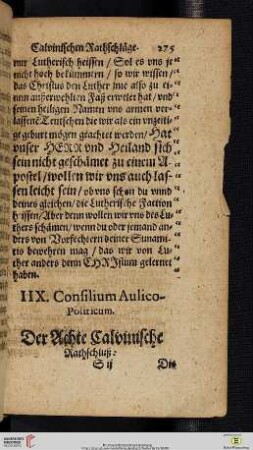 Calvinischen Rathschläge. 275
nur Lutherisch heissen / Sol es vns je
nicht hoch bekümmern / so wir wissen /
das Christus den Luther jme also zu ei-
nem außerwehlten Faß erwelet hat / vnd
seinen heiligen Namen vns armen ver-
lassene Teutschen die wir als ein vnzeiti-
ge geburt mögen geachtet werden / Hat
vnser HERR vnd Heiland sich
sein nicht geschämet zu einem A-
postel / wollen wir vns auch las-
sen leicht sein / ob vns schon du vnnd
deines gleichen / die Lutherische Faction
heissen / Aber denn wollen wir vns des Lu-
thers schämen / wenn du oder jemand an-
ders von Vorfechtern deiner Sunami-
tis bewehren mag / das wir von Lu-
ther anders denn CHRIstum gelernet
haben.
IIX. Consilium Aulico-
Politicum.
Der Achte Calvinische
Rathschluß:
S ij Die